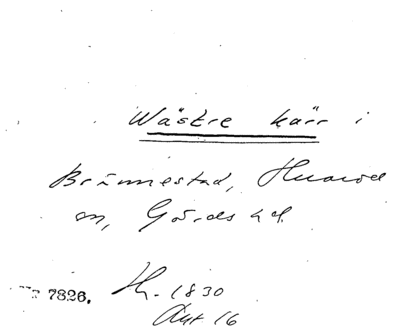 Wästre kärr i
Brännestad, Huaröd
sn, Gärds hd.
7826. Th. 1830
Akt 16